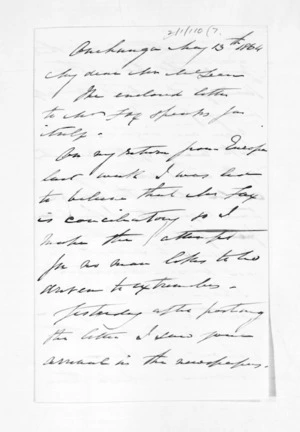 2/1/110 (7.
Onehunga May 13th 1864
My dear Mr McLean
The enclosed letter
to Mr Fox speaks for
itself.
On my return from
last week I was
to believe that Mr Fox
is conciliatory so I
make this attempt
for no man likes to be
driven to extremities.
Yesterday after posting
this letter I saw your
arrival in the newspapers.